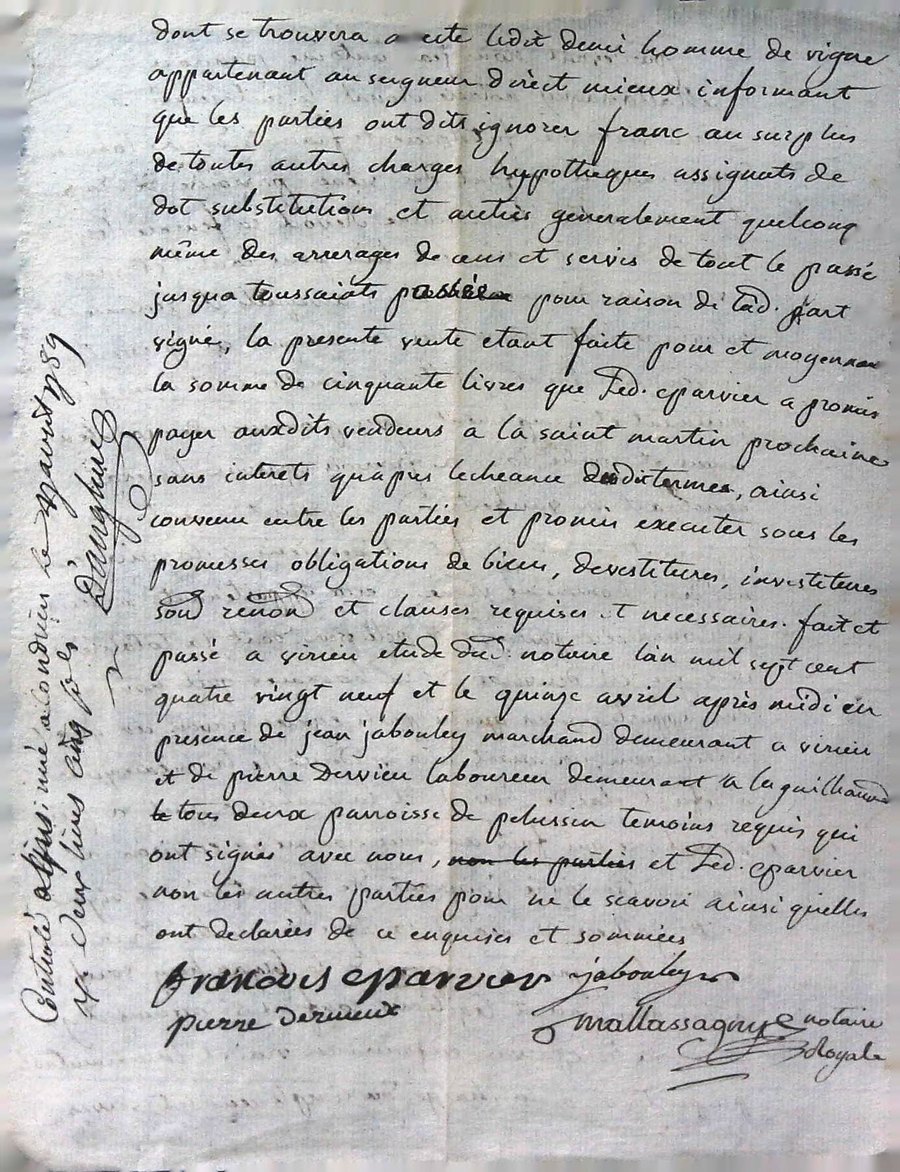 dont se trouvera a cete ledit demi homme de vigne
appartenant au seigneur direct mieux informant
que les parties ont dits ignorer franc au surplus
de toutes autres charges hypotheques assignats de
dot substitutions et autres generalement quelconq
même des arrerages de cens et servis de tout le passé
jusqua toussaints pour raison de lad. part
vigne, la presente vente etant faite pour et moyennan
la somme de cinquante livres que led. eparvier a promis
payer auxdits vendeurs a la saint martin prochaine
sans interets qu'après lecheance dudit terme, ainsi
convenu entre les parties et promis executer sous les
promesses obligations de biens, devestitures, investitures
soud renond et clauses requises et necessaires. fait et
passé a virieu etude dud. notaire l'an mil sept cent
quatre vingt neuf et le quinze avril après midi en
presence de jean jabouley marchand demeurant a virieu
et de pierre Dervieu laboureur demeurant a la guilhaud
tous deux parroisse de pelussin temoins requis qui
ont signés avec nous, non les parties et led. eparvier
non les autres parties pour ne le scavoir ainsi quelles
ont declarées de ce enquises et sommées
francois eparvier jabouley
pierre dervieux
mallassagny notaire
Royale
Controlé a condrieu le avril 1789
deux livres cinq sols